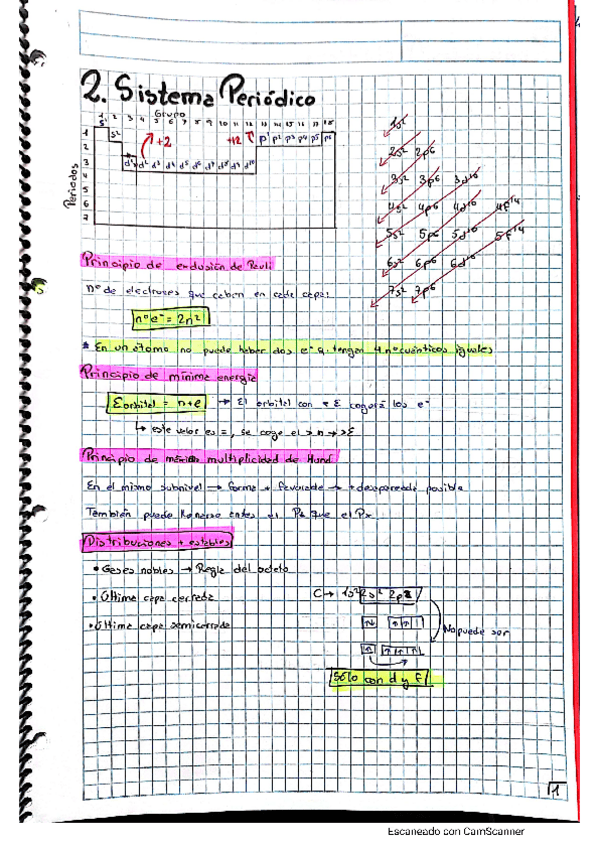 2. Sistema Periódico
Grupo
1 2 3 4 5 6 7 8 9 10 11 12 13 14 15 16 17 18
Periodos
1
2
3
4
5
6
7
s¹ s²
+2 +12 p¹ p² p³ p⁴ p⁵ p⁶
d¹ d² d³ d⁴ d⁵ d⁶ d⁷ d⁸ d⁹ d¹⁰
1s²
2s² 2p⁶
3s² 3p⁶ 3d¹⁰
4s² 4p⁶ 4d¹⁰ 4f¹⁴
5s² 5p⁶ 5d¹⁰ 5f¹⁴
6s² 6p⁶ 6d¹⁰
7s² 7p⁶
Principio de exclusión de Pauli
nº de electrones que caben en cada capa:
nº e⁻ = 2n²
* En un átomo no puede haber dos e⁻ q. tengan 4 nº cuánticos iguales
Principio de mínima energía
Eorbital = n+l → El orbital con < E cogerá los e⁻
↳ este valor es =, se coge el > n → > E
Principio de máxima multiplicidad de Hund
En el mismo subnivel → forma + favorable → + desapareada posible
También puede ponerse antes el Pz que el Px
Distribuciones + estables
• Gases nobles → Regla del octeto
• Última capa cerrada
• Última capa semicerrada
C → 1s² 2s² 2p²
No puede ser
Sólo con d y f
1
Escaneado con CamScanner